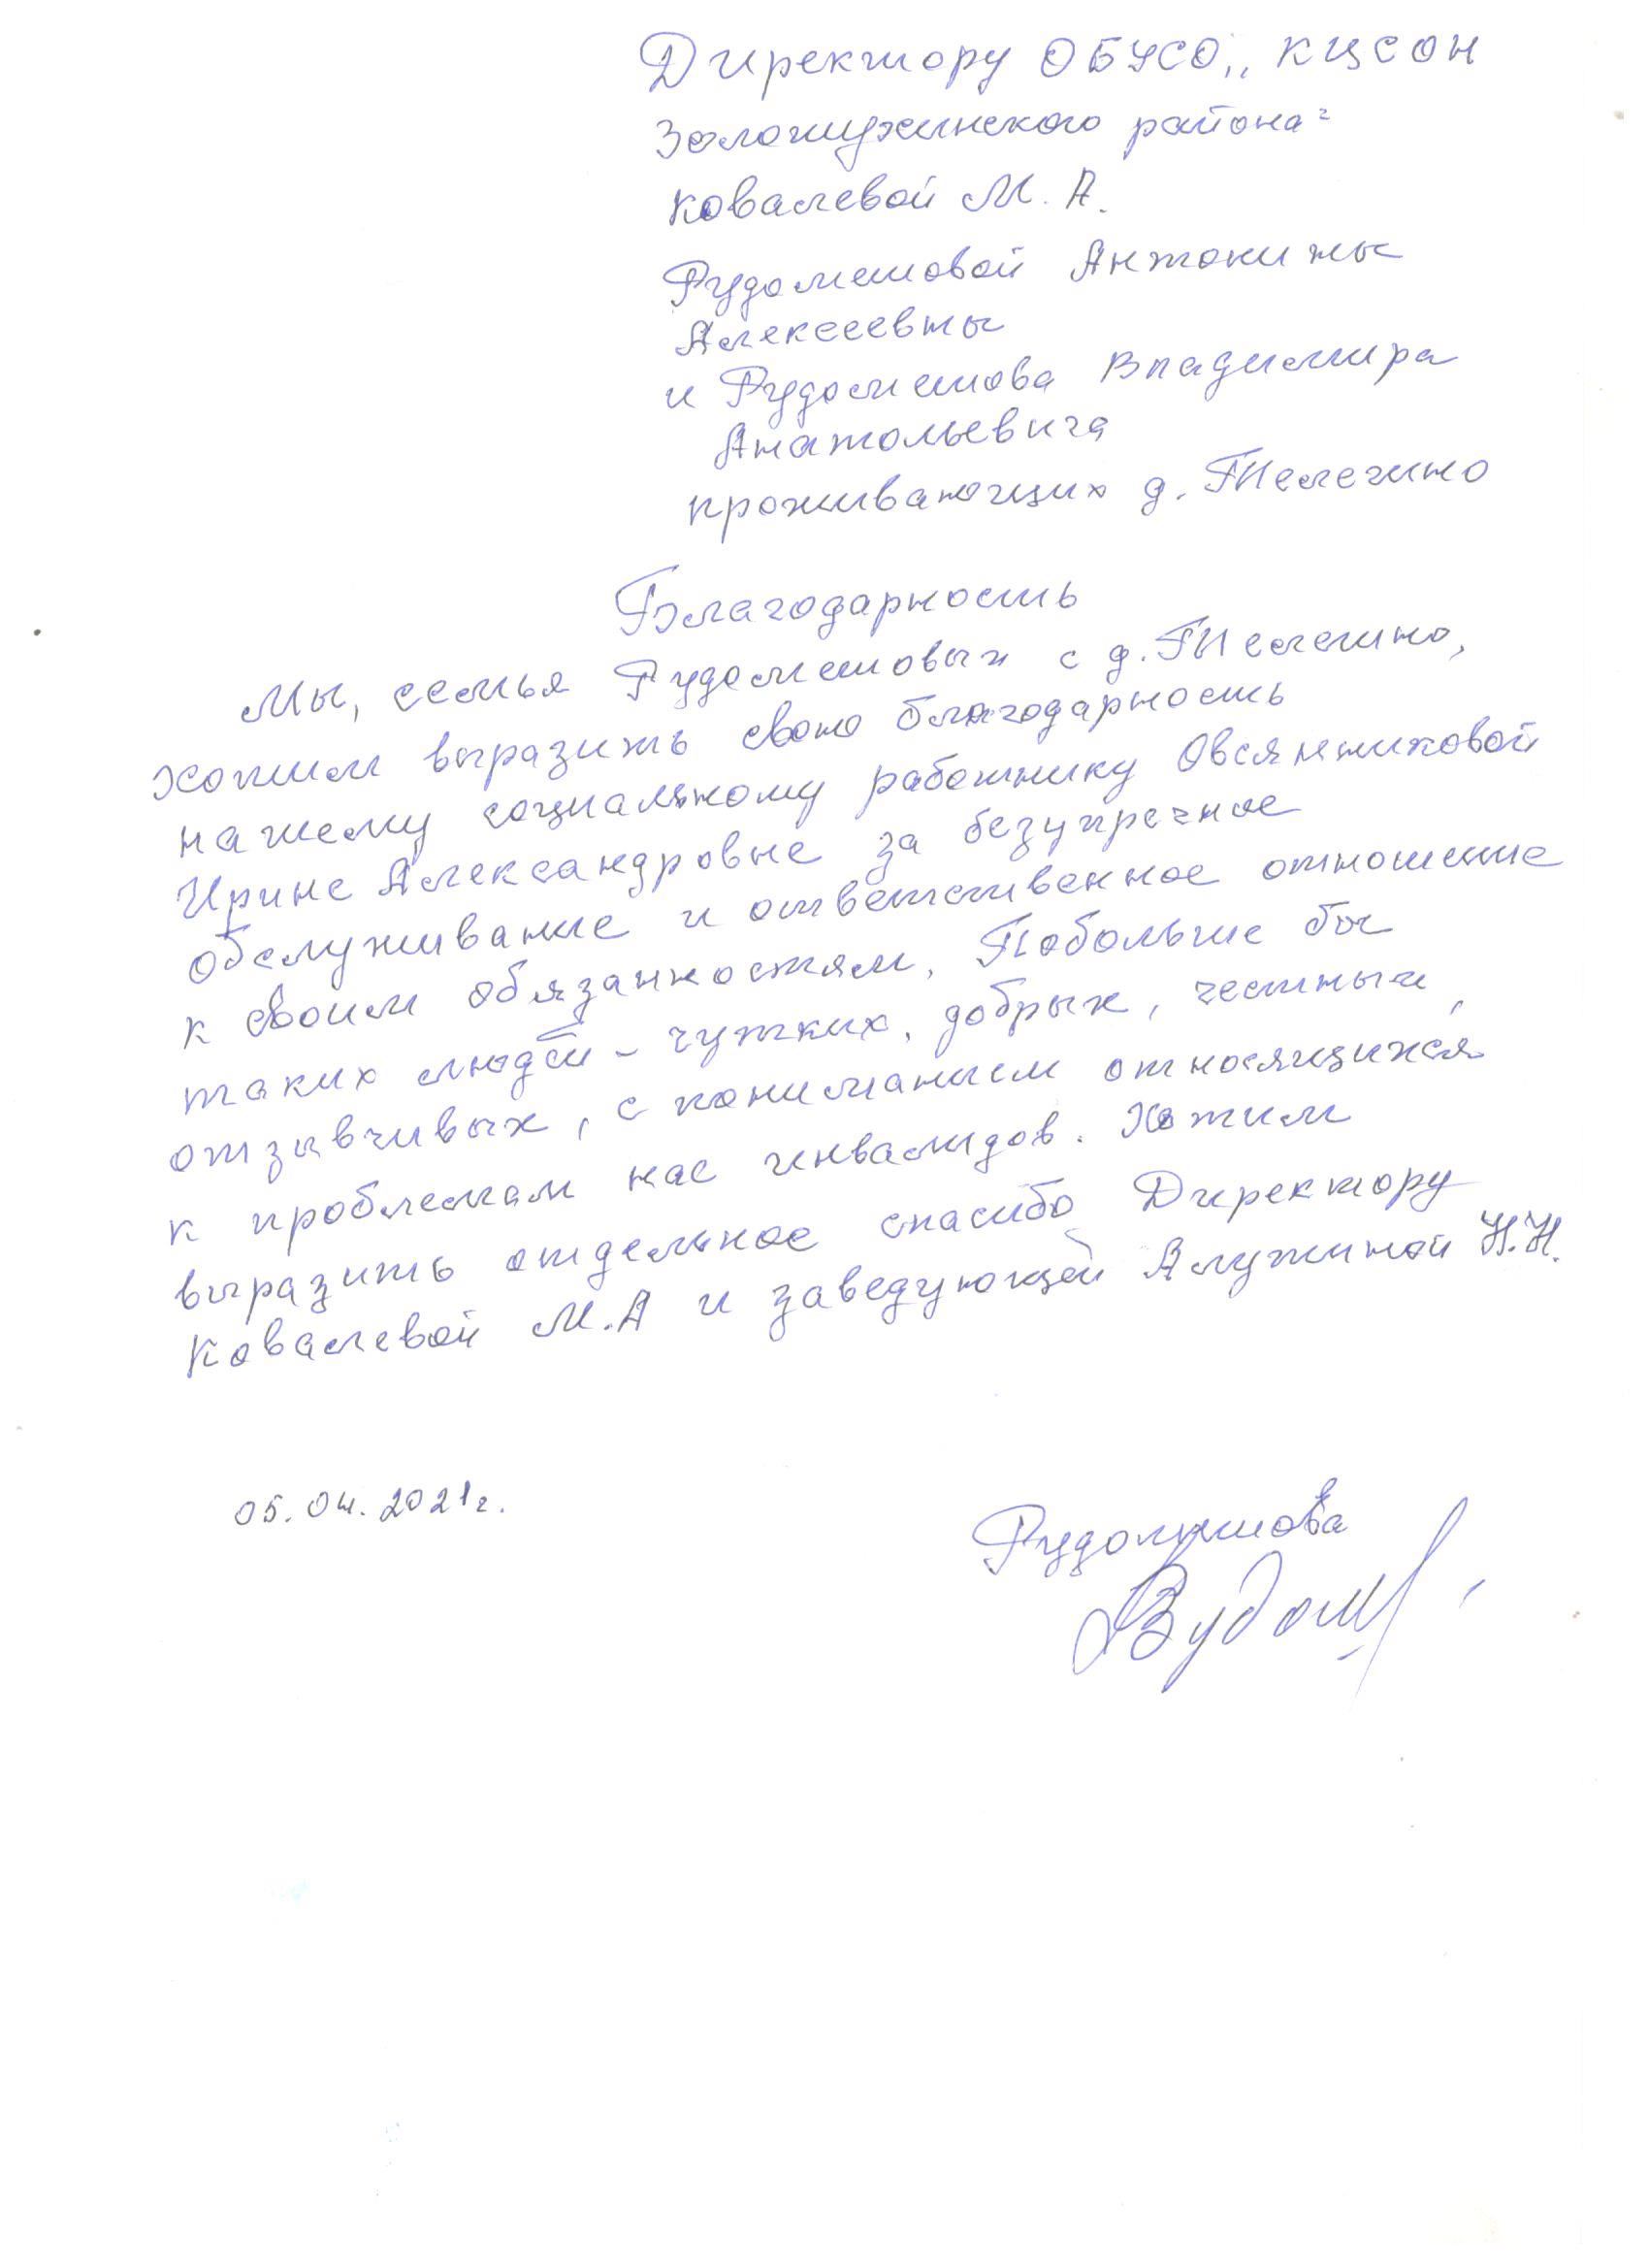 Директору ОБУСО „КЦСОН
Золотухинского района"
Ковалевой М. А.
Рудометовой Антонины
Алексеевны
и Рудометова Владимира
Анатольевича
проживающих д. Телегино
Благодарность
Мы, семья Рудометовых с д. Телегино,
хотим выразить свою благодарность
нашему социальному работнику Овсянниковой
Ирине Александровне за безупречное
обслуживание и ответственное отношение
к своим обязанностям. Побольше бы
таких людей - чутких, добрых, честных,
отзывчивых, с пониманием относящихся
к проблемам нас инвалидов. Хотим
выразить отдельное спасибо Директору
Ковалевой М.А и заведующей Н.Н.
05.04.2021г.
Рудометова